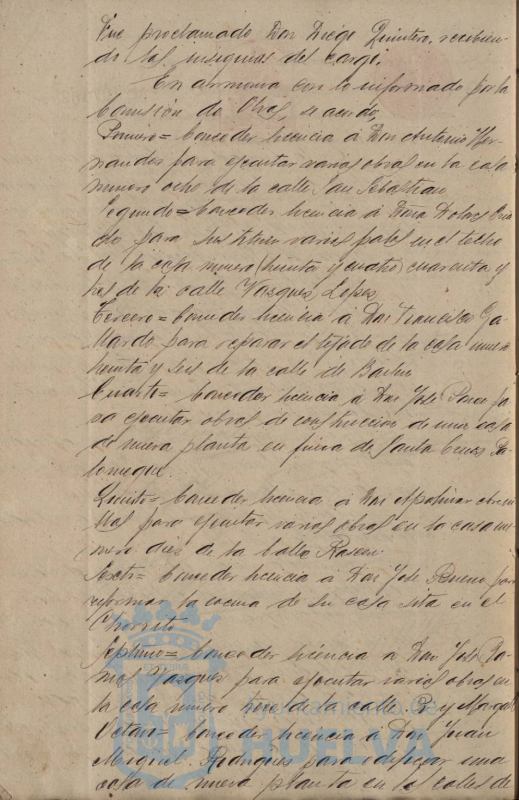 Fue proclamado Don Diego Quintero, recibien-
do las insignias del cargo.
En armonia con lo informado por la
Comisión de Obras, se acordó,
Primero= Conceder licencia á Don Antonio Her-
nandez para ejecutar varias obras en la casa
numero ocho de la calle San Sebastian
Segundo= Conceder licencia á Doña Dolores
para sustituir varios palos en el techo
de la casa numero (treinta y cuatro) cuarenta y
tres de la calle Vazquez Lopez,
Tercero= Conceder licencia á Don Francisco Ga-
llardo para reparar el tejado de la casa numero
treinta y seis de la calle de
Cuarto= Conceder licencia á Don José Ponce pa-
ra ejecutar obras de construccion de una casa
de nueva planta en finca de Santa Cruz
Quinto= Conceder licencia á Don Apolinar Are-
llas para ejecutar varias obras en la casa nu-
mero diez de la Calle Rascon
Sexto= Conceder licencia á Don José Romero para
reformar la cocina de su casa sita en el
Chorrito
Septimo= Conceder licencia á Don José Ra-
mos Vazquez para ejecutar varias obras en
la casa numero trece de la calle Pi y Margall
Octavo= Conceder licencia á Don Juan
Miguel Rodriguez para edificar una
casa de nueva planta en las calles de
Ayuntamiento de
HUELVA